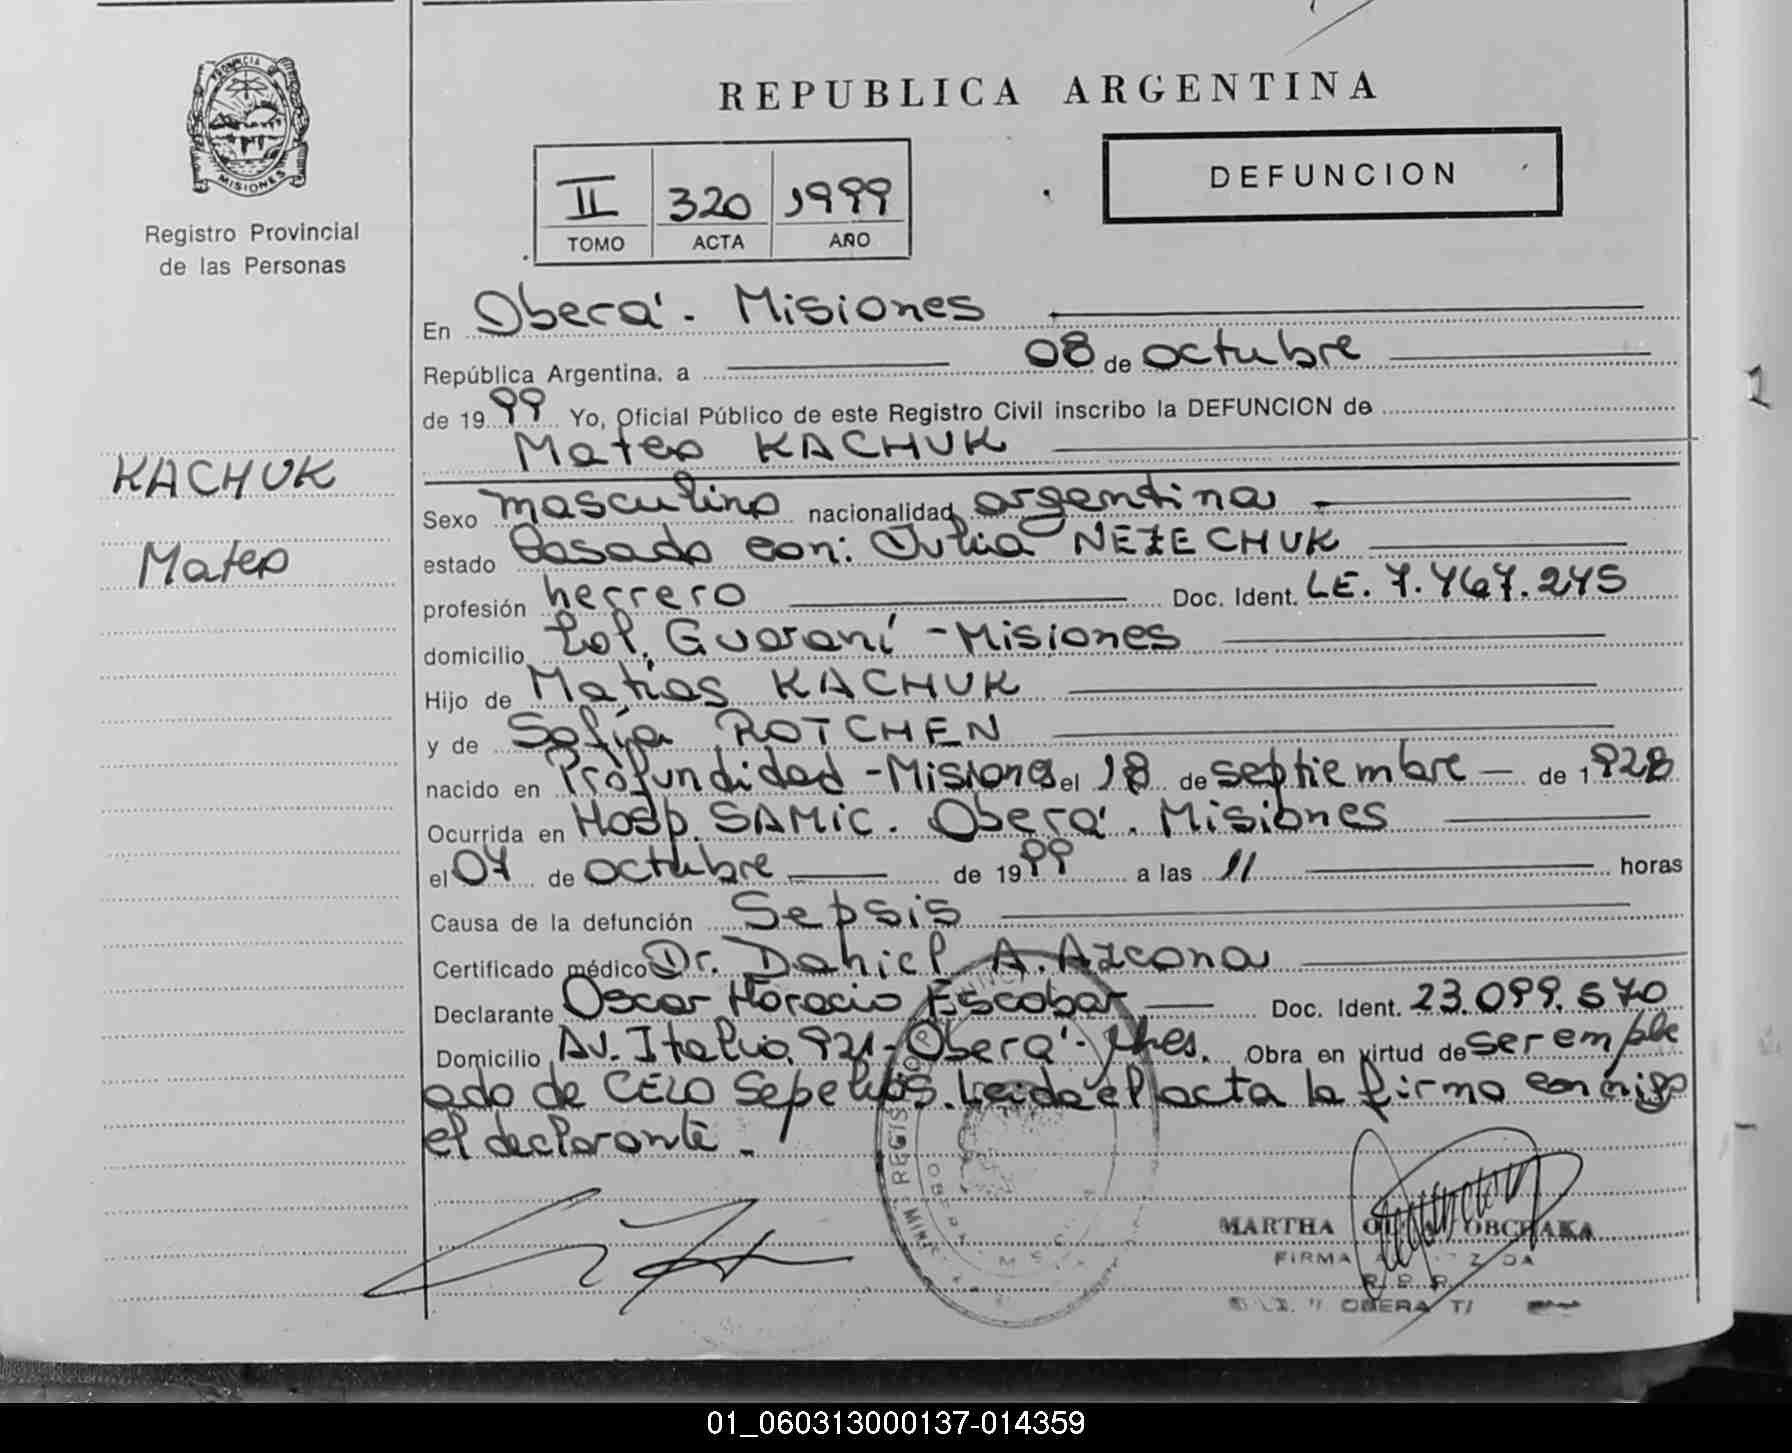 PROVINCIA DE
MISIONES
Registro Provincial
de las Personas
KACHUK
Mateo
REPUBLICA ARGENTINA
II 320 1999
TOMO ACTA AÑO
DEFUNCION
En Oberá - Misiones
República Argentina, a 08 de octubre
de 1999 Yo, Oficial Público de este Registro Civil inscribo la DEFUNCION de
Mateo KACHUK
Sexo masculino nacionalidad argentina
estado Casado con: Julia NEZECHUK
profesión herrero Doc. Ident. LE. 7.467.245
domicilio Col. Guaraní - Misiones
Hijo de Matías KACHUK
y de Sofía ROTCHEN
nacido en Profundidad - Misiones el 18 de septiembre de 1928
Ocurrida en Hosp. SAMIC. Oberá. Misiones
el 07 de octubre de 1999 a las 11 horas
Causa de la defunción Sepsis
Certificado médico Dr. Daniel A. Azcona
Declarante Oscar Horacio Escobar Doc. Ident. 23.099.570
Domicilio Av. Italia 921 - Oberá - Mnes. Obra en virtud de ser emple
ado de CELO Sepelios. Leida el acta la firma conmigo
el declarante.
MARTHA
FIRMA
OBERA
01_060313000137-014359